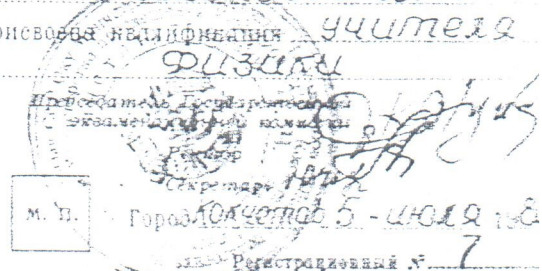 присвоена квалификация учителя
физики
Председатель Государственной
экзаменационной комиссии
Ректор
Секретарь
М. П. Город Кокчетав 5 - июля
Регистрационный № 7